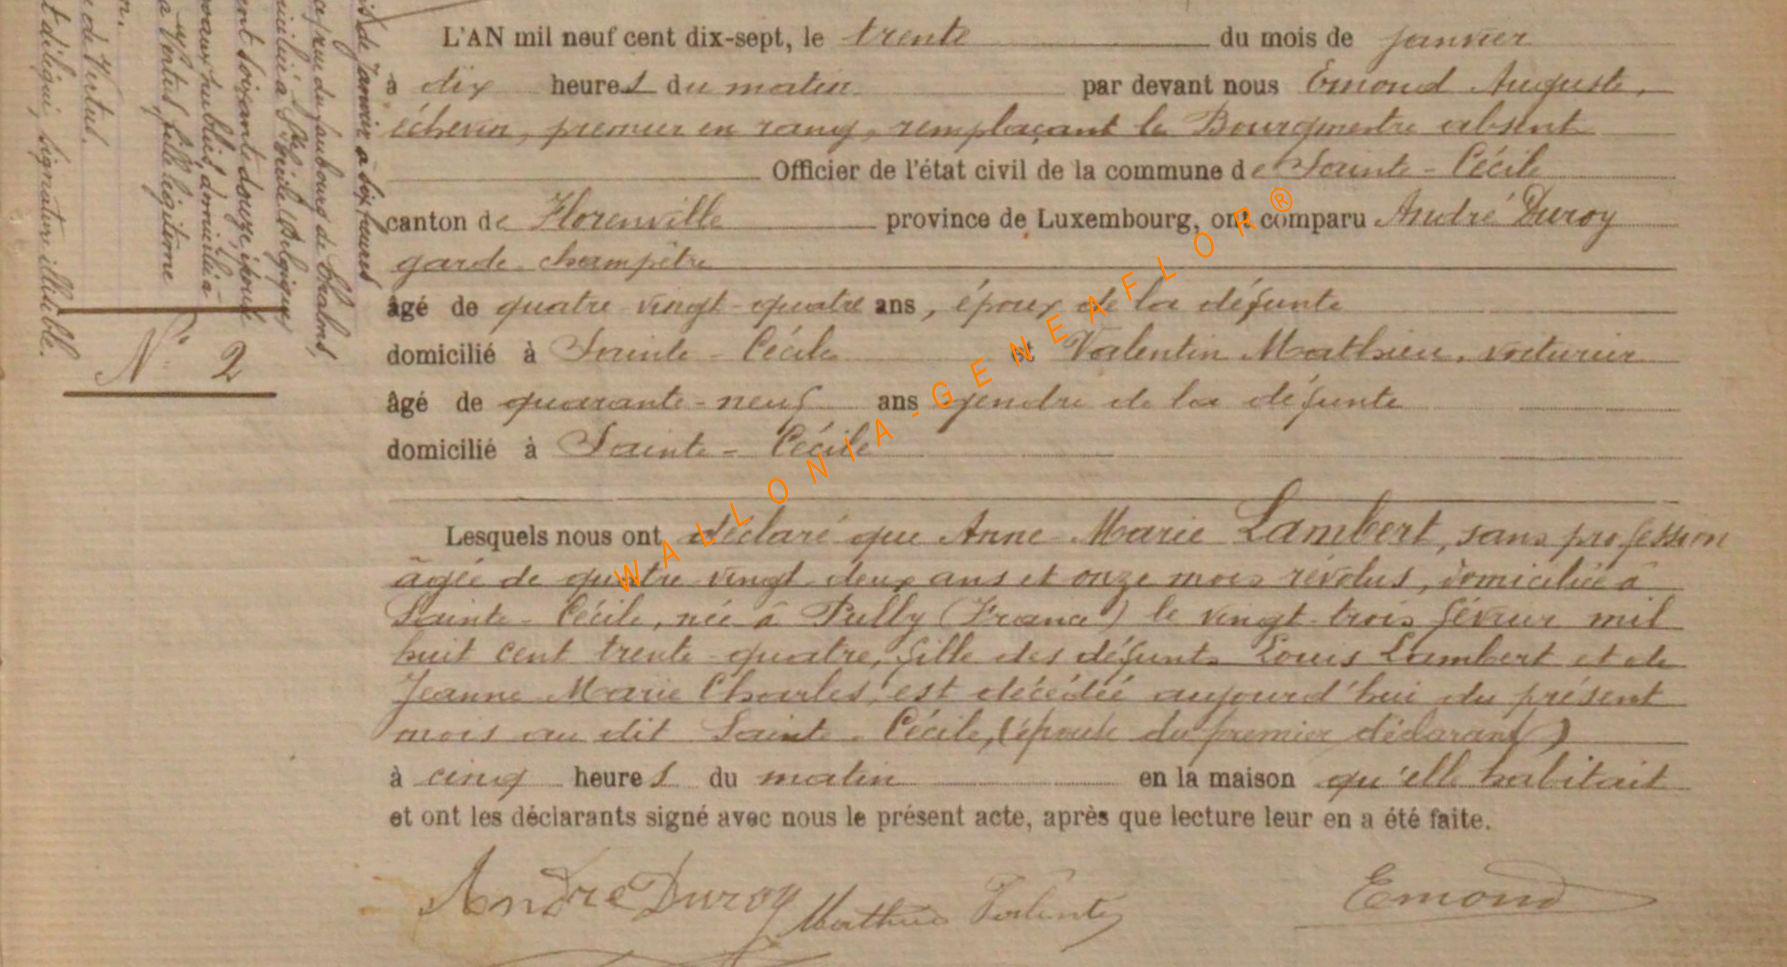 L'AN mil neuf cent dix-sept, le trente du mois de janvier
à dix heures du matin par devant nous Emond Auguste,
échevin, premier en rang, remplaçant le Bourgmestre absent
Officier de l'état civil de la commune de Sainte-Cécile
canton de Florenville province de Luxembourg, ont comparu André Duroy
garde-champêtre
âgé de quatre vingt-quatre ans, époux de la défunte
domicilié à Sainte-Cécile et Valentin Mathieu, voiturier
âgé de quarante-neuf ans gendre de la défunte
domicilié à Sainte-Cécile
Lesquels nous ont déclaré que Anne Marie Lambert, sans profession
âgée de quatre vingt-deux ans et onze mois révolus, domiciliée à
Sainte-Cécile, née à Pully (France) le vingt-trois février mil
huit cent trente-quatre, fille des défunts Louis Lambert et de
Jeanne Marie Charles, est décédée aujourd'hui du présent
mois au dit Sainte-Cécile, (épouse du premier déclarant)
à cinq heures du matin en la maison qu'elle habitait
et ont les déclarants signé avec nous le présent acte, après que lecture leur en a été faite.
André Duroy Mathieu Valentin Emond
N° 2
de janvier à dix heures
rue du faubourg de Chalons,
à Ste Cécile (Belgique)
soixante douze, épouse
domicilié à
fille légitime
de Vertus.
délégué, signature illisible.
WALLONIA-GENEAFLOR®